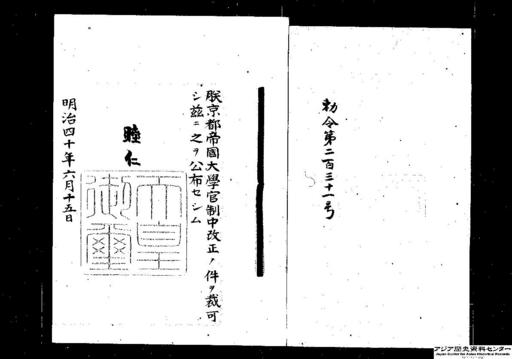 勅令第二百三十一号
朕京都帝國大學官制中改正ノ件ヲ裁可
シ茲ニ之ヲ公布セシム
睦仁
天皇
御璽
明治四十年六月十五日
アジア歴史資料センター
Japan Center for Asian Historical Records